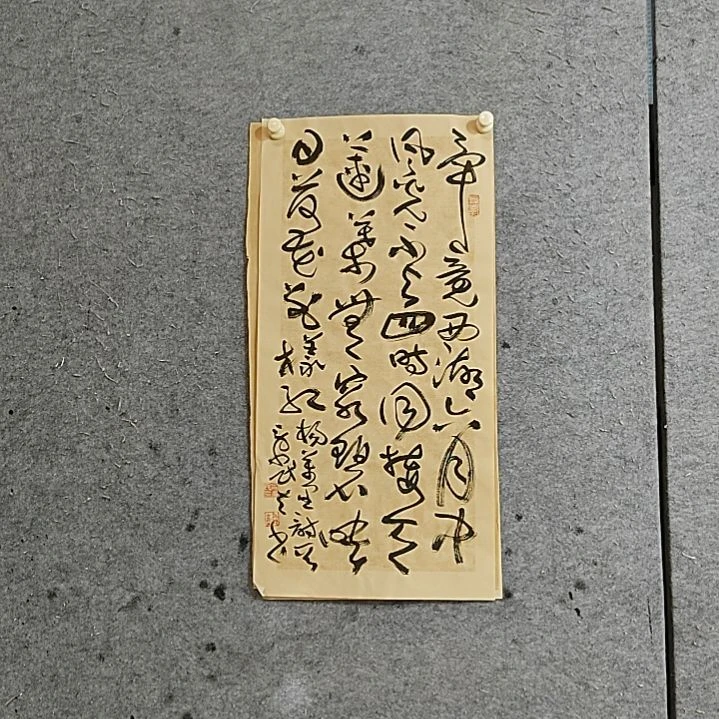 毕竟西湖六月中
风光不与四时同接天
莲叶无穷碧映
日荷花别样红
杨万里诗一首